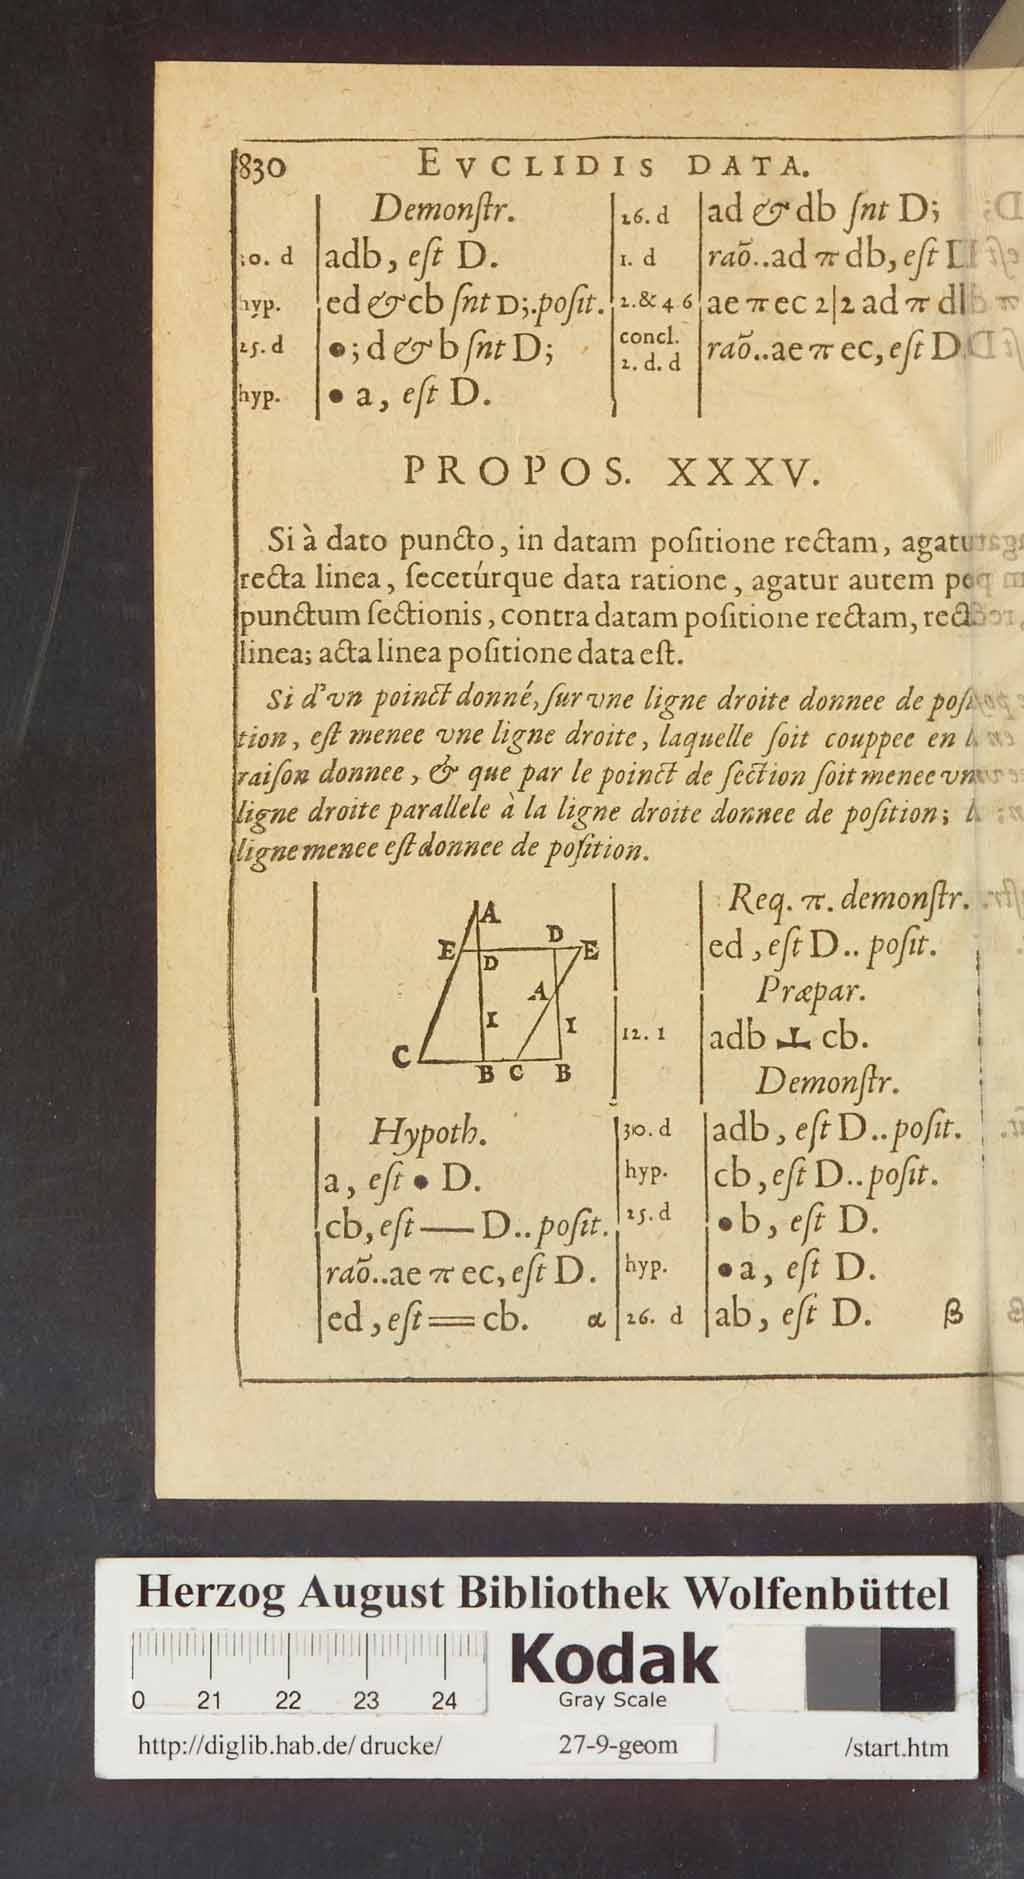 830 EVCLIDIS DATA.
Demonſtr.
30. d adb, eſt D.
hyp. ed & cb ſnt D;.poſit.
25. d •; d & b ſnt D;
hyp. • a, eſt D.
26. d ad & db ſnt D;
1. d raõ..ad π db, eſt
2. & 4 6 ae π ec 2|2 ad π
concl.
2. d. d raõ..ae π ec, eſt D
PROPOS. XXXV.
Si à dato puncto, in datam poſitione rectam, agatur
recta linea, ſecetúrque data ratione, agatur autem per
punctum ſectionis, contra datam poſitione rectam,
linea; acta linea poſitione data eſt.
Si d'vn poinct donné, ſur vne ligne droite donnee de poſi
tion, eſt menee vne ligne droite, laquelle ſoit couppee en
raiſon donnee, & que par le poinct de ſection ſoit menee vn
ligne droite parallele à la ligne droite donnee de poſition;
ligne menee eſt donnee de poſition.
A
E D D E
A
I I
C B C B
Hypoth.
a, eſt • D.
cb, eſt — D..poſit.
raõ..ae π ec, eſt D.
ed, eſt = cb. α
Req. π. demonſtr.
ed, eſt D.. poſit.
Præpar.
12. 1 adb ⊥ cb.
Demonſtr.
30. d adb, eſt D..poſit.
hyp. cb, eſt D..poſit.
25. d • b, eſt D.
hyp. • a, eſt D.
26. d ab, eſt D. β
Herzog August Bibliothek Wolfenbüttel
0 21 22 23 24
Kodak
Gray Scale
http://diglib.hab.de/drucke/ 27-9-geom /start.htm